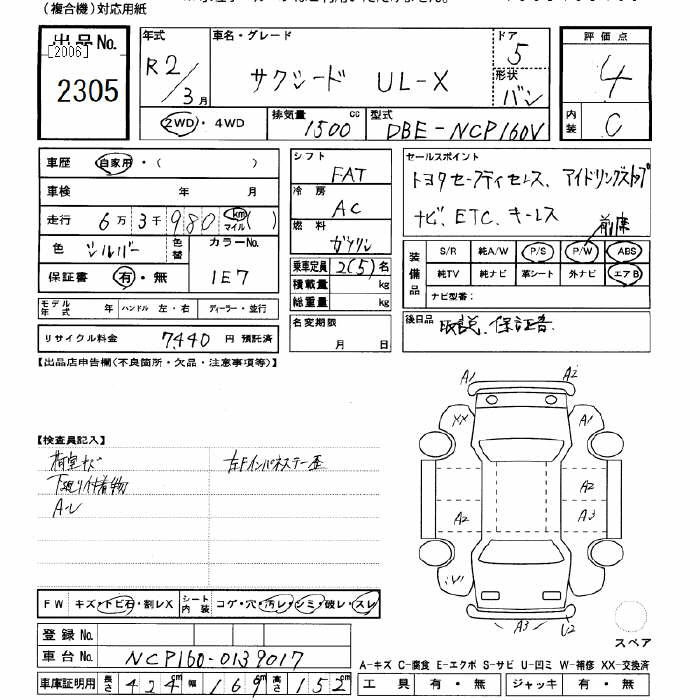 (複合機)対応用紙
出品No. [2006] 2305
年式 R2/3月
車名・グレード サクシード UL-X
ドア 5
形状 バン
評価点 4
内装 C
2WD・4WD
排気量 1500 cc
型式 DBE-NCP160V
車歴 自家用・( )
車検 年 月
走行 6万3千980 km マイル ( )
色 シルバー 色替 カラーNo. 1E7
保証書 有・無
モデル年式 年 ハンドル 左・右 ディーラー・並行
リサイクル料金 7,440 円 預託済
シフト FAT
冷房 AC
燃料 ガソリン
乗車定員 2(5)名
積載量 kg
総重量 kg
名変期限 月 日
セールスポイント
トヨタセーフティセンス、アイドリングストップ
ナビ、ETC、キーレス
前席
装備品 S/R 純A/W P/S P/W ABS
純TV 純ナビ 革シート 外ナビ エアB
ナビ型番:
後日品 取説、保証書
【出品店申告欄(不良箇所・欠品・注意事項等)】
【検査員記入】
荷室キズ 左Fインパネステー歪
下廻り付着物
A-U
A1 A2
XX A1
A2
A2 A3
U1
A3 U2
スペア
FW キズ・トビ石・割レX シート内装 コゲ・穴・汚レ・シミ・破レ・スレ
登録No.
車台No. NCP160-0139017
車庫証明用 長さ 424 cm 幅 169 cm 高さ 152 cm
A-キズ C-腐食 E-エクボ S-サビ U-凹ミ W-補修 XX-交換済
工具 有・無 ジャッキ 有・無